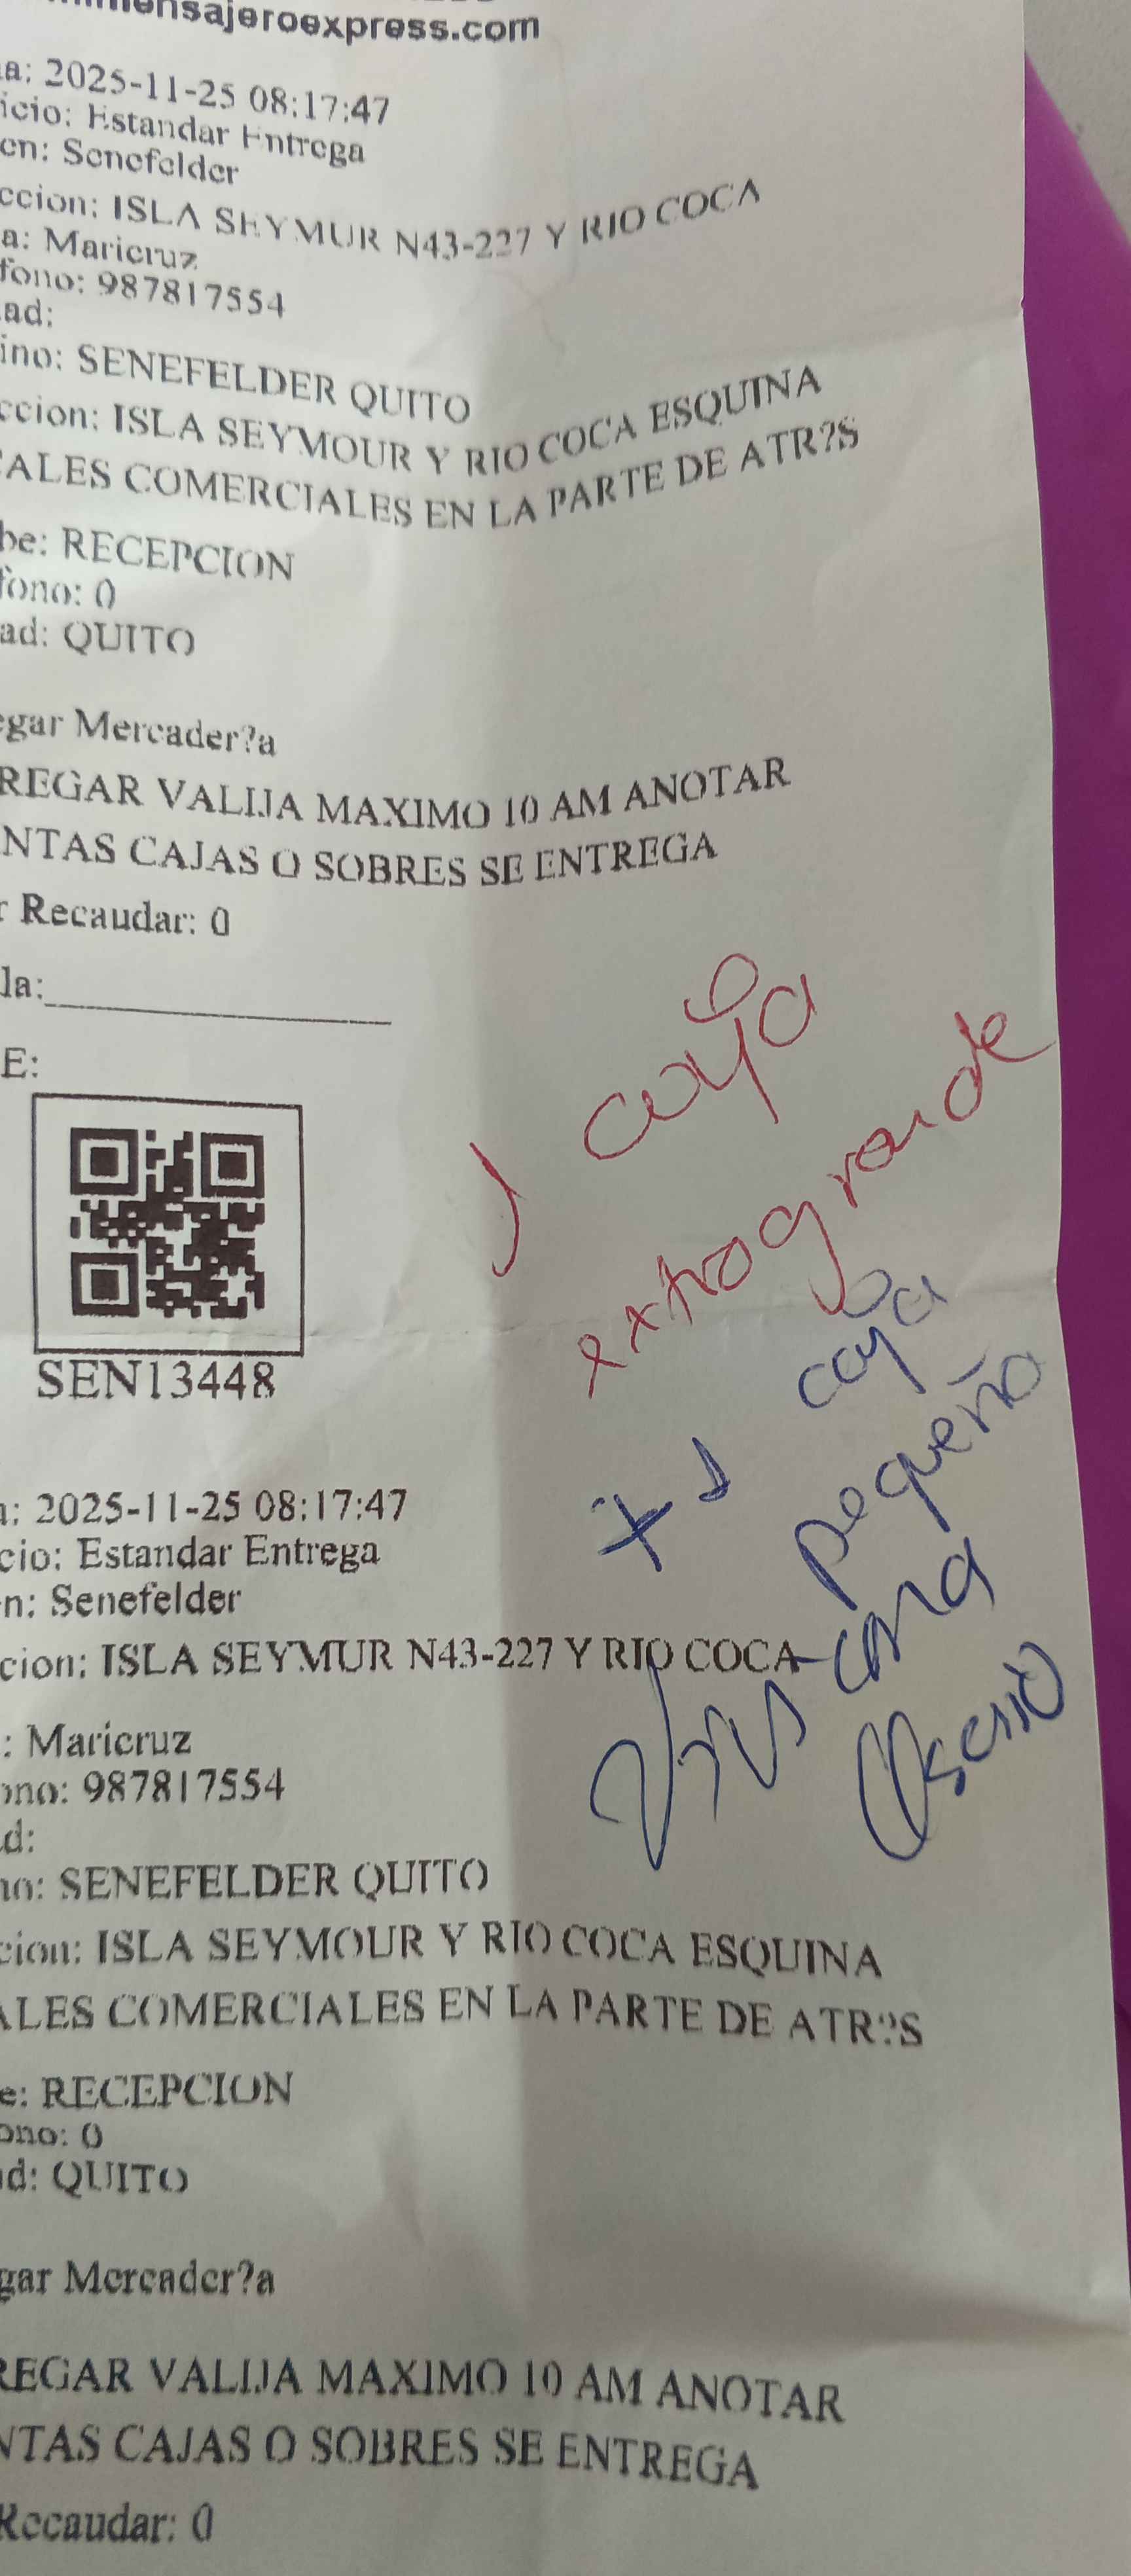 mensajeroexpress.com
a: 2025-11-25 08:17:47
icio: Estandar Entrega
en: Senefelder
ccion: ISLA SEYMUR N43-227 Y RIO COCA
a: Maricruz
fono: 987817554
ad:
ino: SENEFELDER QUITO
ccion: ISLA SEYMOUR Y RIO COCA ESQUINA
CALES COMERCIALES EN LA PARTE DE ATR?S
be: RECEPCION
fono: 0
ad: QUITO
egar Mercader?a
REGAR VALIJA MAXIMO 10 AM ANOTAR
NTAS CAJAS O SOBRES SE ENTREGA
r Recaudar: 0
la:
E:
1 caja
extragrande
SEN13448
+ 1 caja
pequeña
a: 2025-11-25 08:17:47
cio: Estandar Entrega
n: Senefelder
cion: ISLA SEYMUR N43-227 Y RIO COCA
: Maricruz
ono: 987817554
d:
no: SENEFELDER QUITO
cion: ISLA SEYMOUR Y RIO COCA ESQUINA
ALES COMERCIALES EN LA PARTE DE ATR?S
e: RECEPCION
ono: 0
d: QUITO
gar Mercader?a
REGAR VALIJA MAXIMO 10 AM ANOTAR
NTAS CAJAS O SOBRES SE ENTREGA
Recaudar: 0